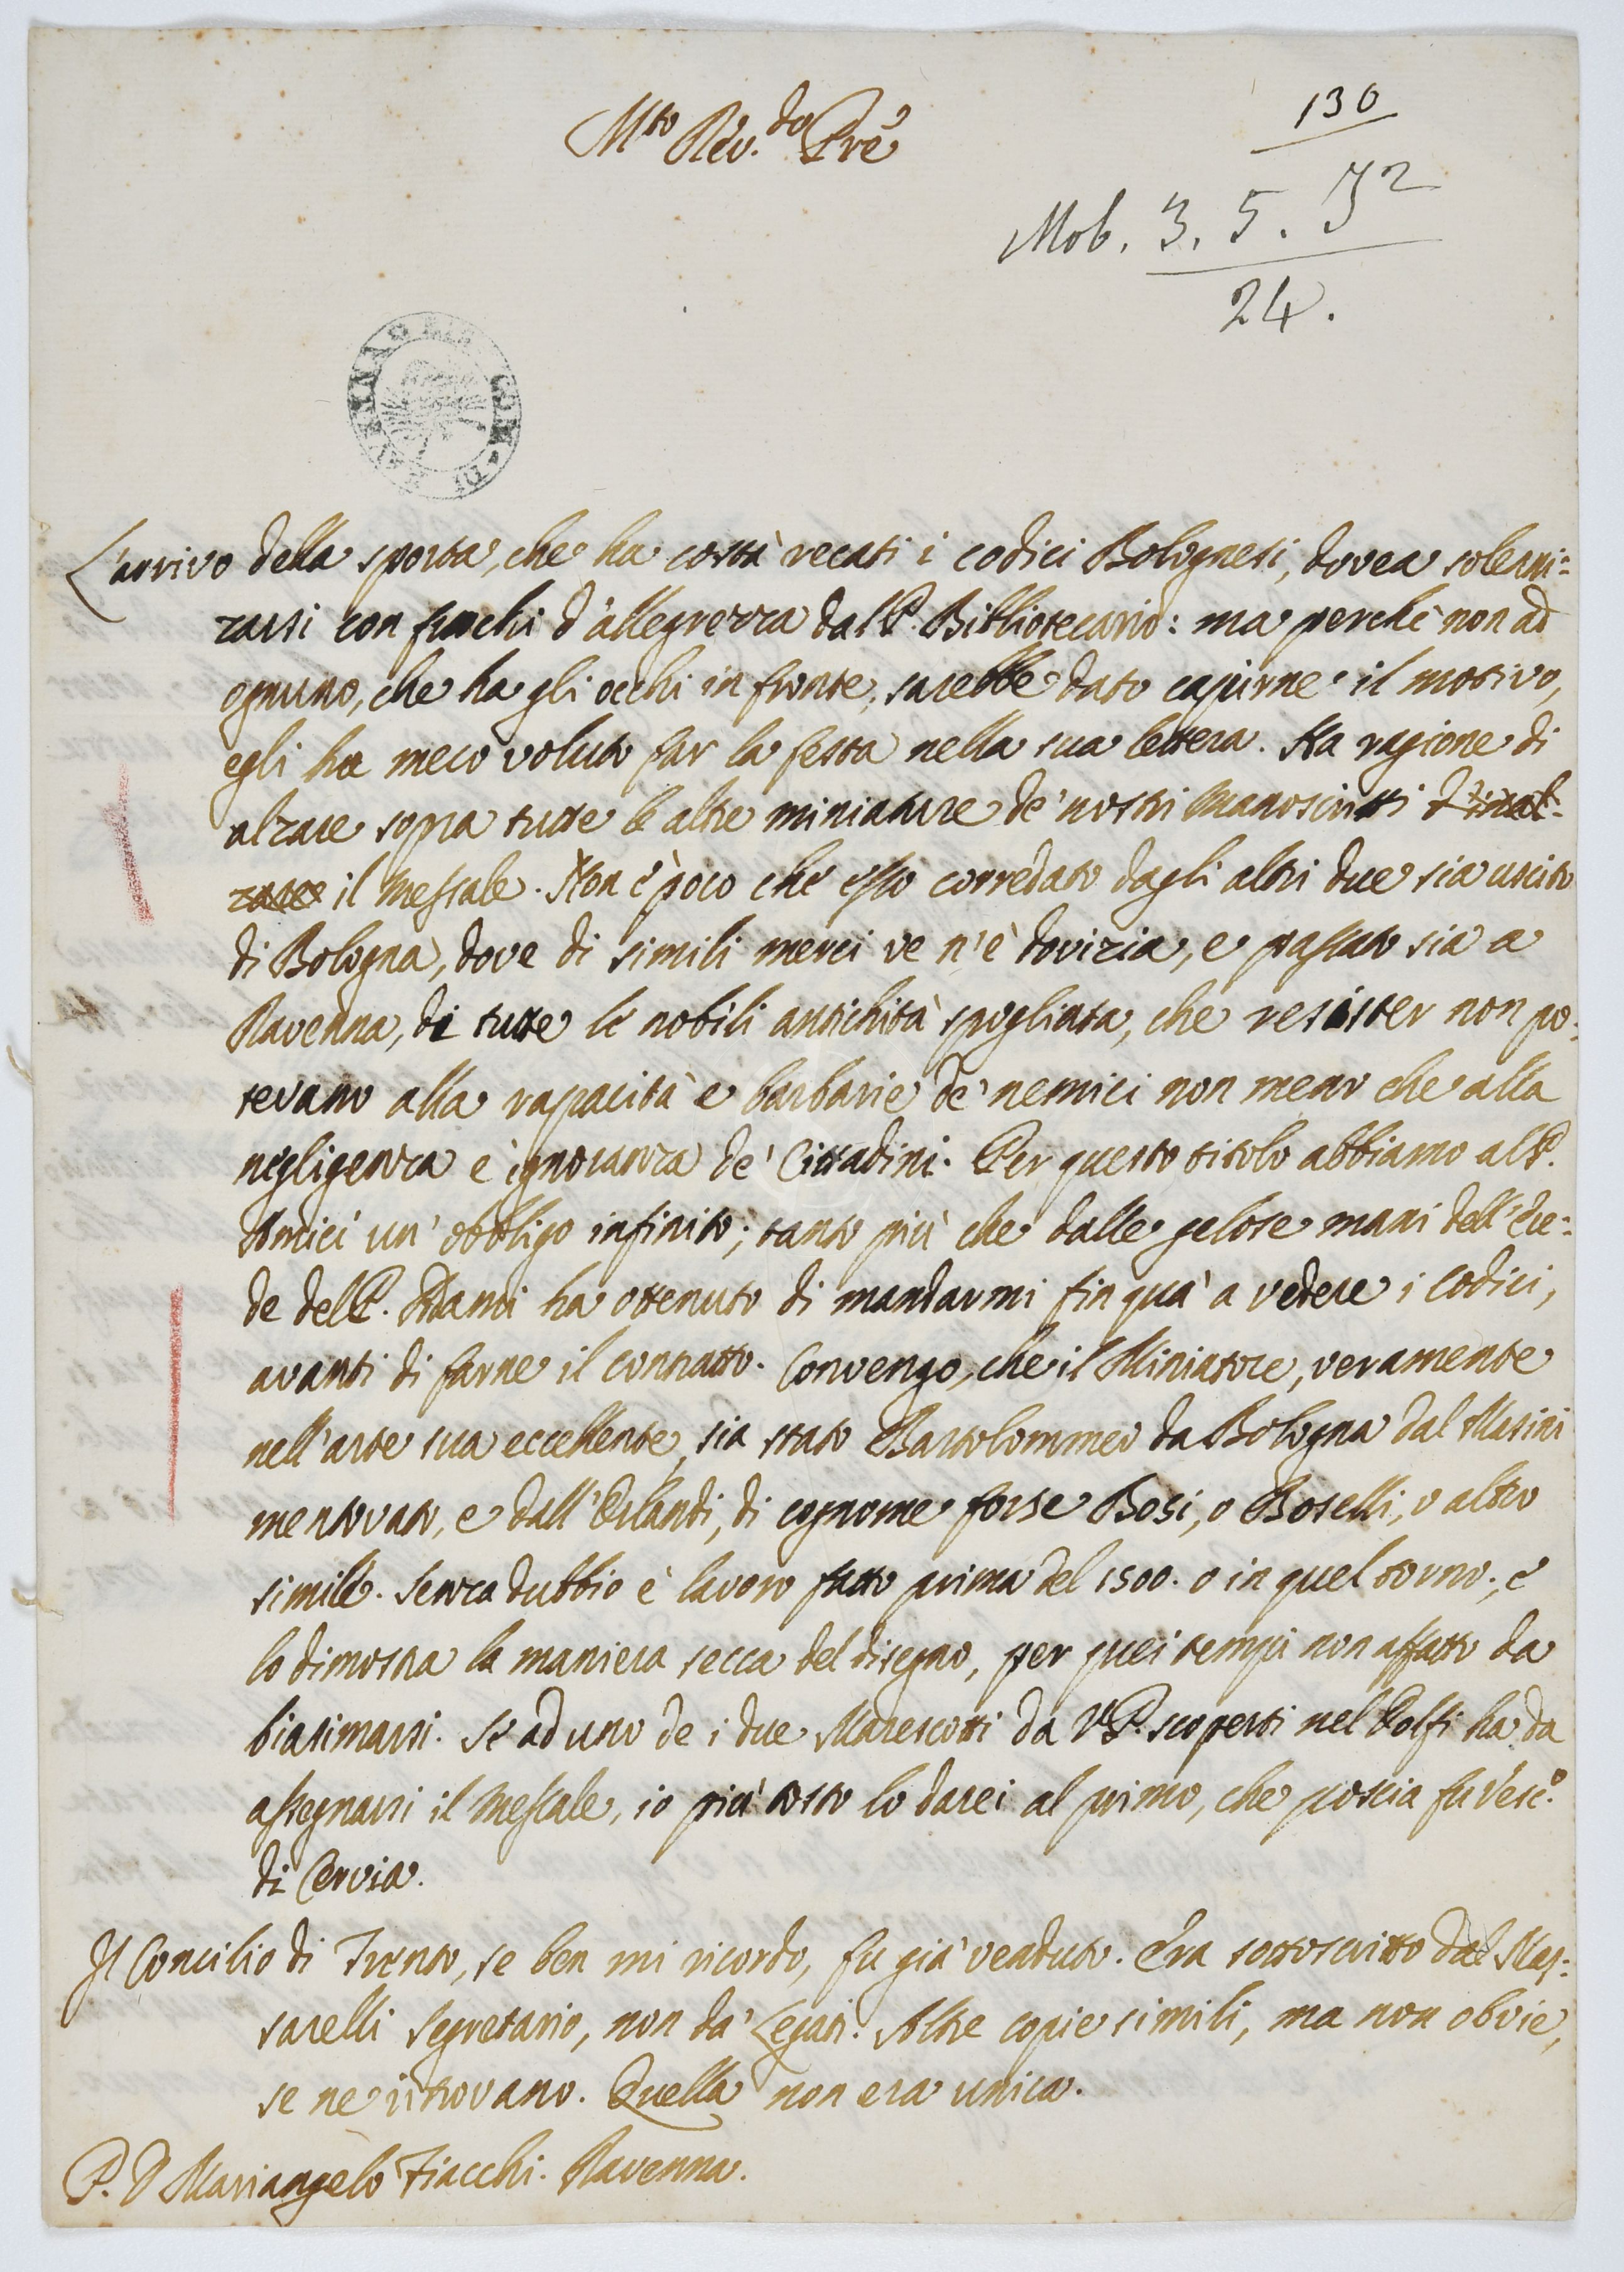 130
Mto Rev.do Pre
Mob. 3. 5. J2
24.
L'arrivo della sporta, che ha costà recati i codici Bolognesi, dovea solenni=
zarsi con fuochi d'allegrezza dal P. Bibliotecario: ma perchè non ad
ognuno, che ha gli occhi in fronte, sarebbe dato capirne il motivo,
egli ha meco voluto far la festa nella sua lettera. Ha ragione di
alzare sopra tutte le altre miniature de' nostri manoscritti
il Messale. Non è poco che esso corredato dagli altri due sia uscito
di Bologna, dove di simili merci ve n'è dovizia, e passato sia a
Ravenna, di tutte le nobili antichità spogliata, che resister non po=
tevano alla rapacità e barbarie de' nemici non meno che alla
negligenza e ignoranza de' Cittadini. Per questo titolo abbiamo al P.
Amici un' obbligo infinito; tanto più che dalle gelose mani dell'Ere=
de del P. ha ottenuto di mandarmi fin quà a vedere i Codici,
avanti di farne il contratto. Convengo, che il Miniatore, veramente
nell'arte sua eccellente, sia stato Bartolommeo da Bologna dal Masini
mentovato, e dall'Orlandi, di cognome forse Bosi, o Boselli, o altro
simile. Senza dubbio è lavoro fatto prima del 1500. o in quel torno; e
lo dimostra la maniera secca del disegno, per quei tempi non affatto da
biasimarsi. Se ad uno de i due Marescotti da V.P. scoperti nel Dolfi ha da
assegnarsi il Messale, io più tosto lo darei al primo, che poscia fu Vesc.o
di Cervia.
Il Concilio di Trento, se ben mi ricordo, fu già venduto. Era sottoscritto dal Mas=
sarelli Segretario, non da' Legati. Altre copie simili, ma non obvie,
se ne ritrovano. Quella non era unica.
P. D Mariangelo Fiacchi. Ravenna.